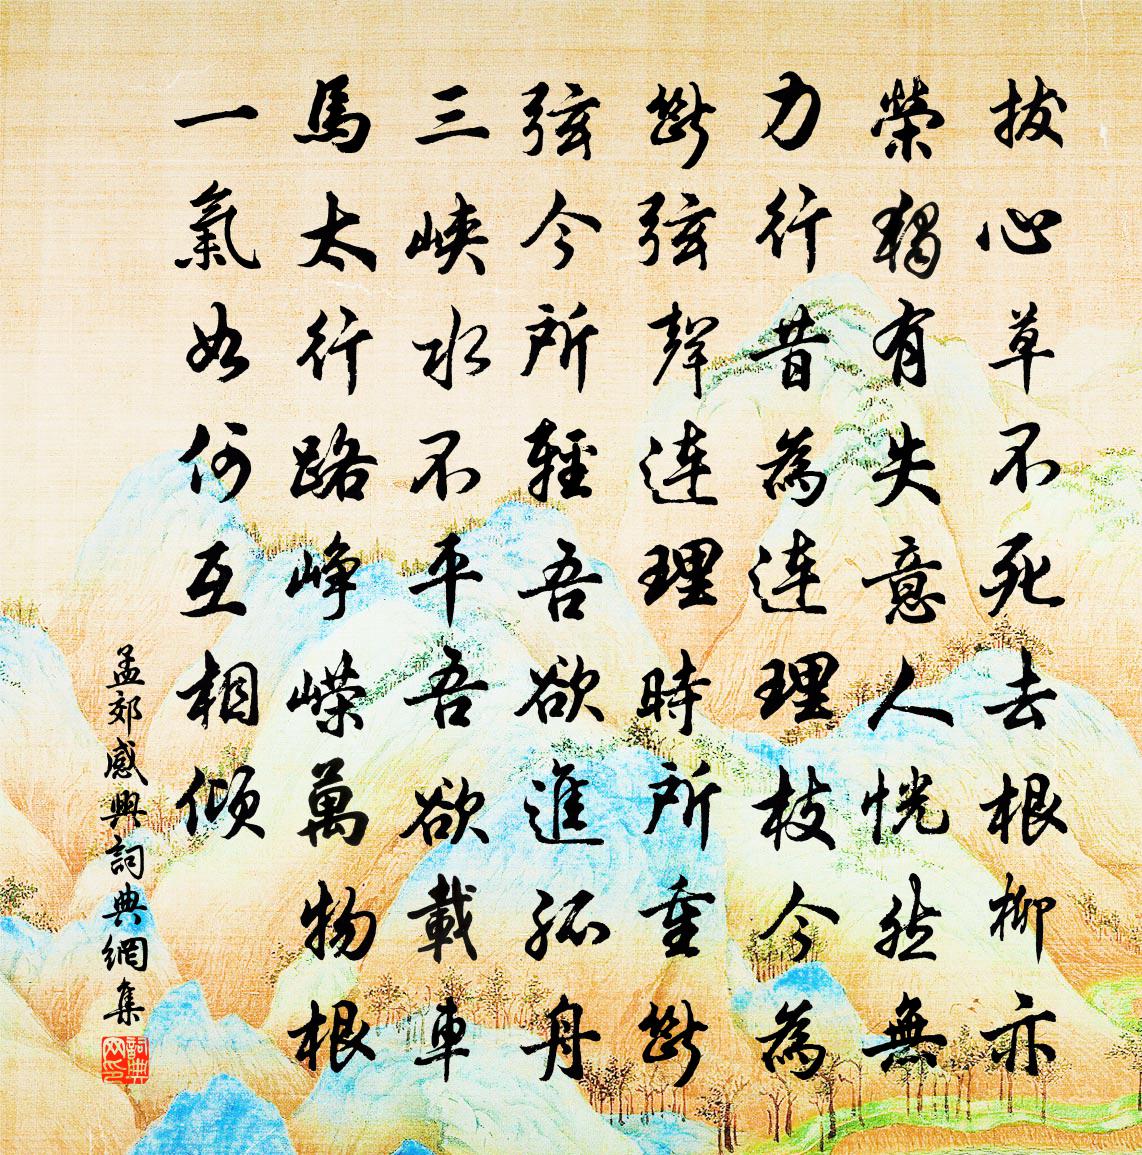 拔心草不死去根柳亦
榮獨有失意人恍然無
力行昔為連理枝今為
斷弦聲連理時所重斷
弦今所輕吾欲進孤舟
三峽水不平吾欲載車
馬太行路崢嶸萬物根
一氣如何互相傾
孟郊感興詞典網集
詞典
网印